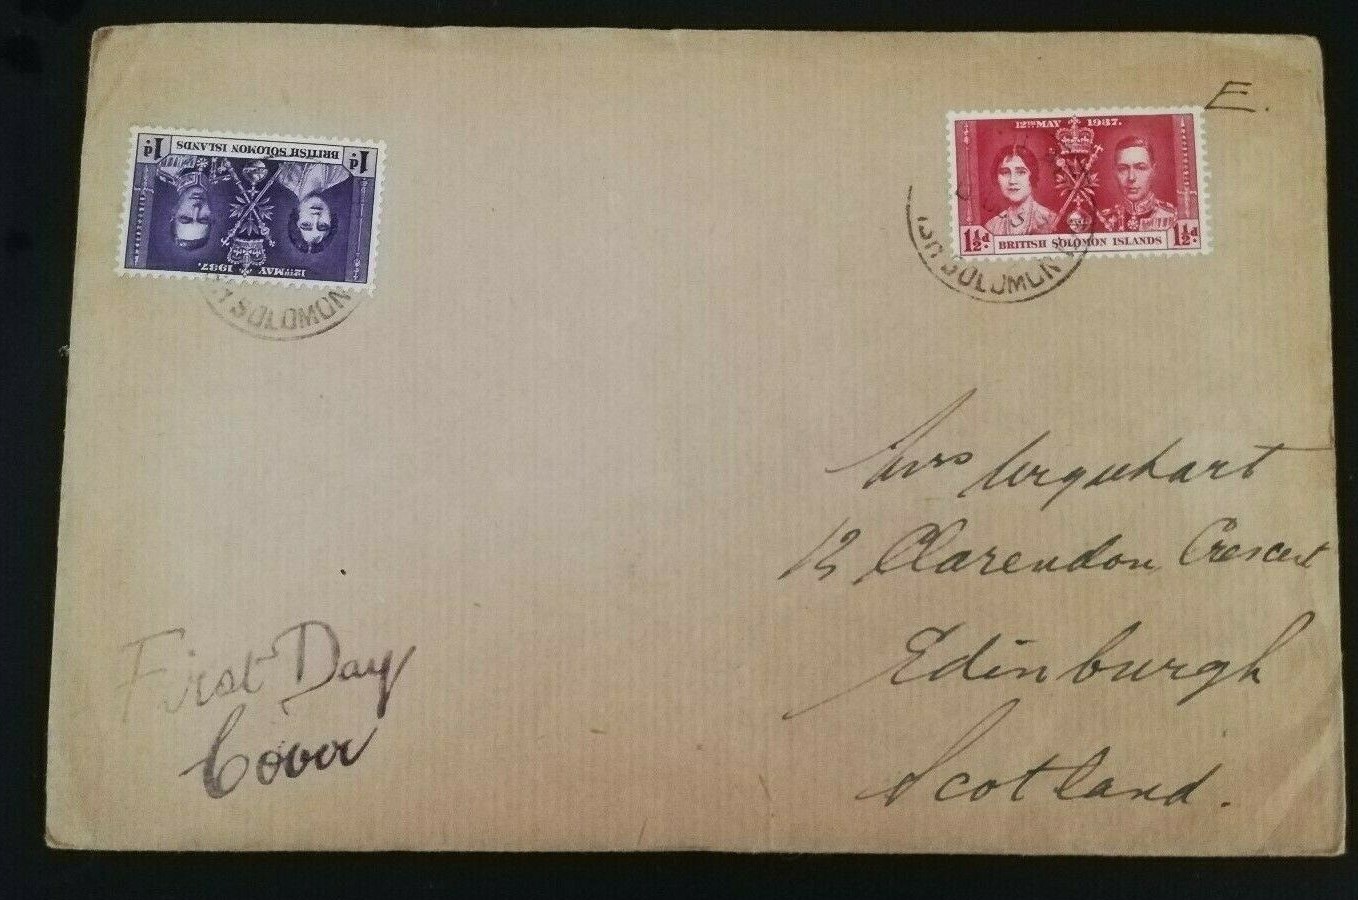 E.
1d.
BRITISH SOLOMON ISLANDS
1d.
12TH MAY 1937.
SOLOMON
12TH MAY 1937.
1½d.
BRITISH SOLOMON ISLANDS
1½d.
SOLOMON
Mrs Urquhart
12 Clarendon Crescent
Edinburgh
Scotland.
First Day
Cover